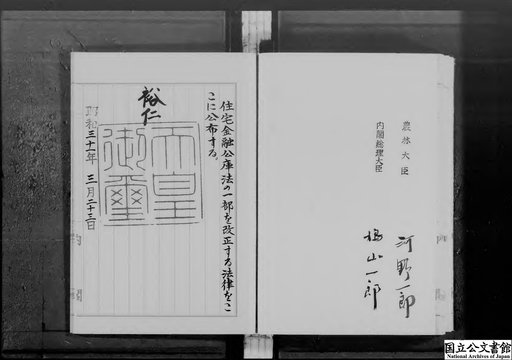 住宅金融公庫法の一部を改正する法律をこ
こに公布する。
裕仁
天皇
御璽
昭和三十一年 三月二十三日
農林大臣
河野一郎
内閣総理大臣
鳩山一郎
国立公文書館
National Archives of Japan